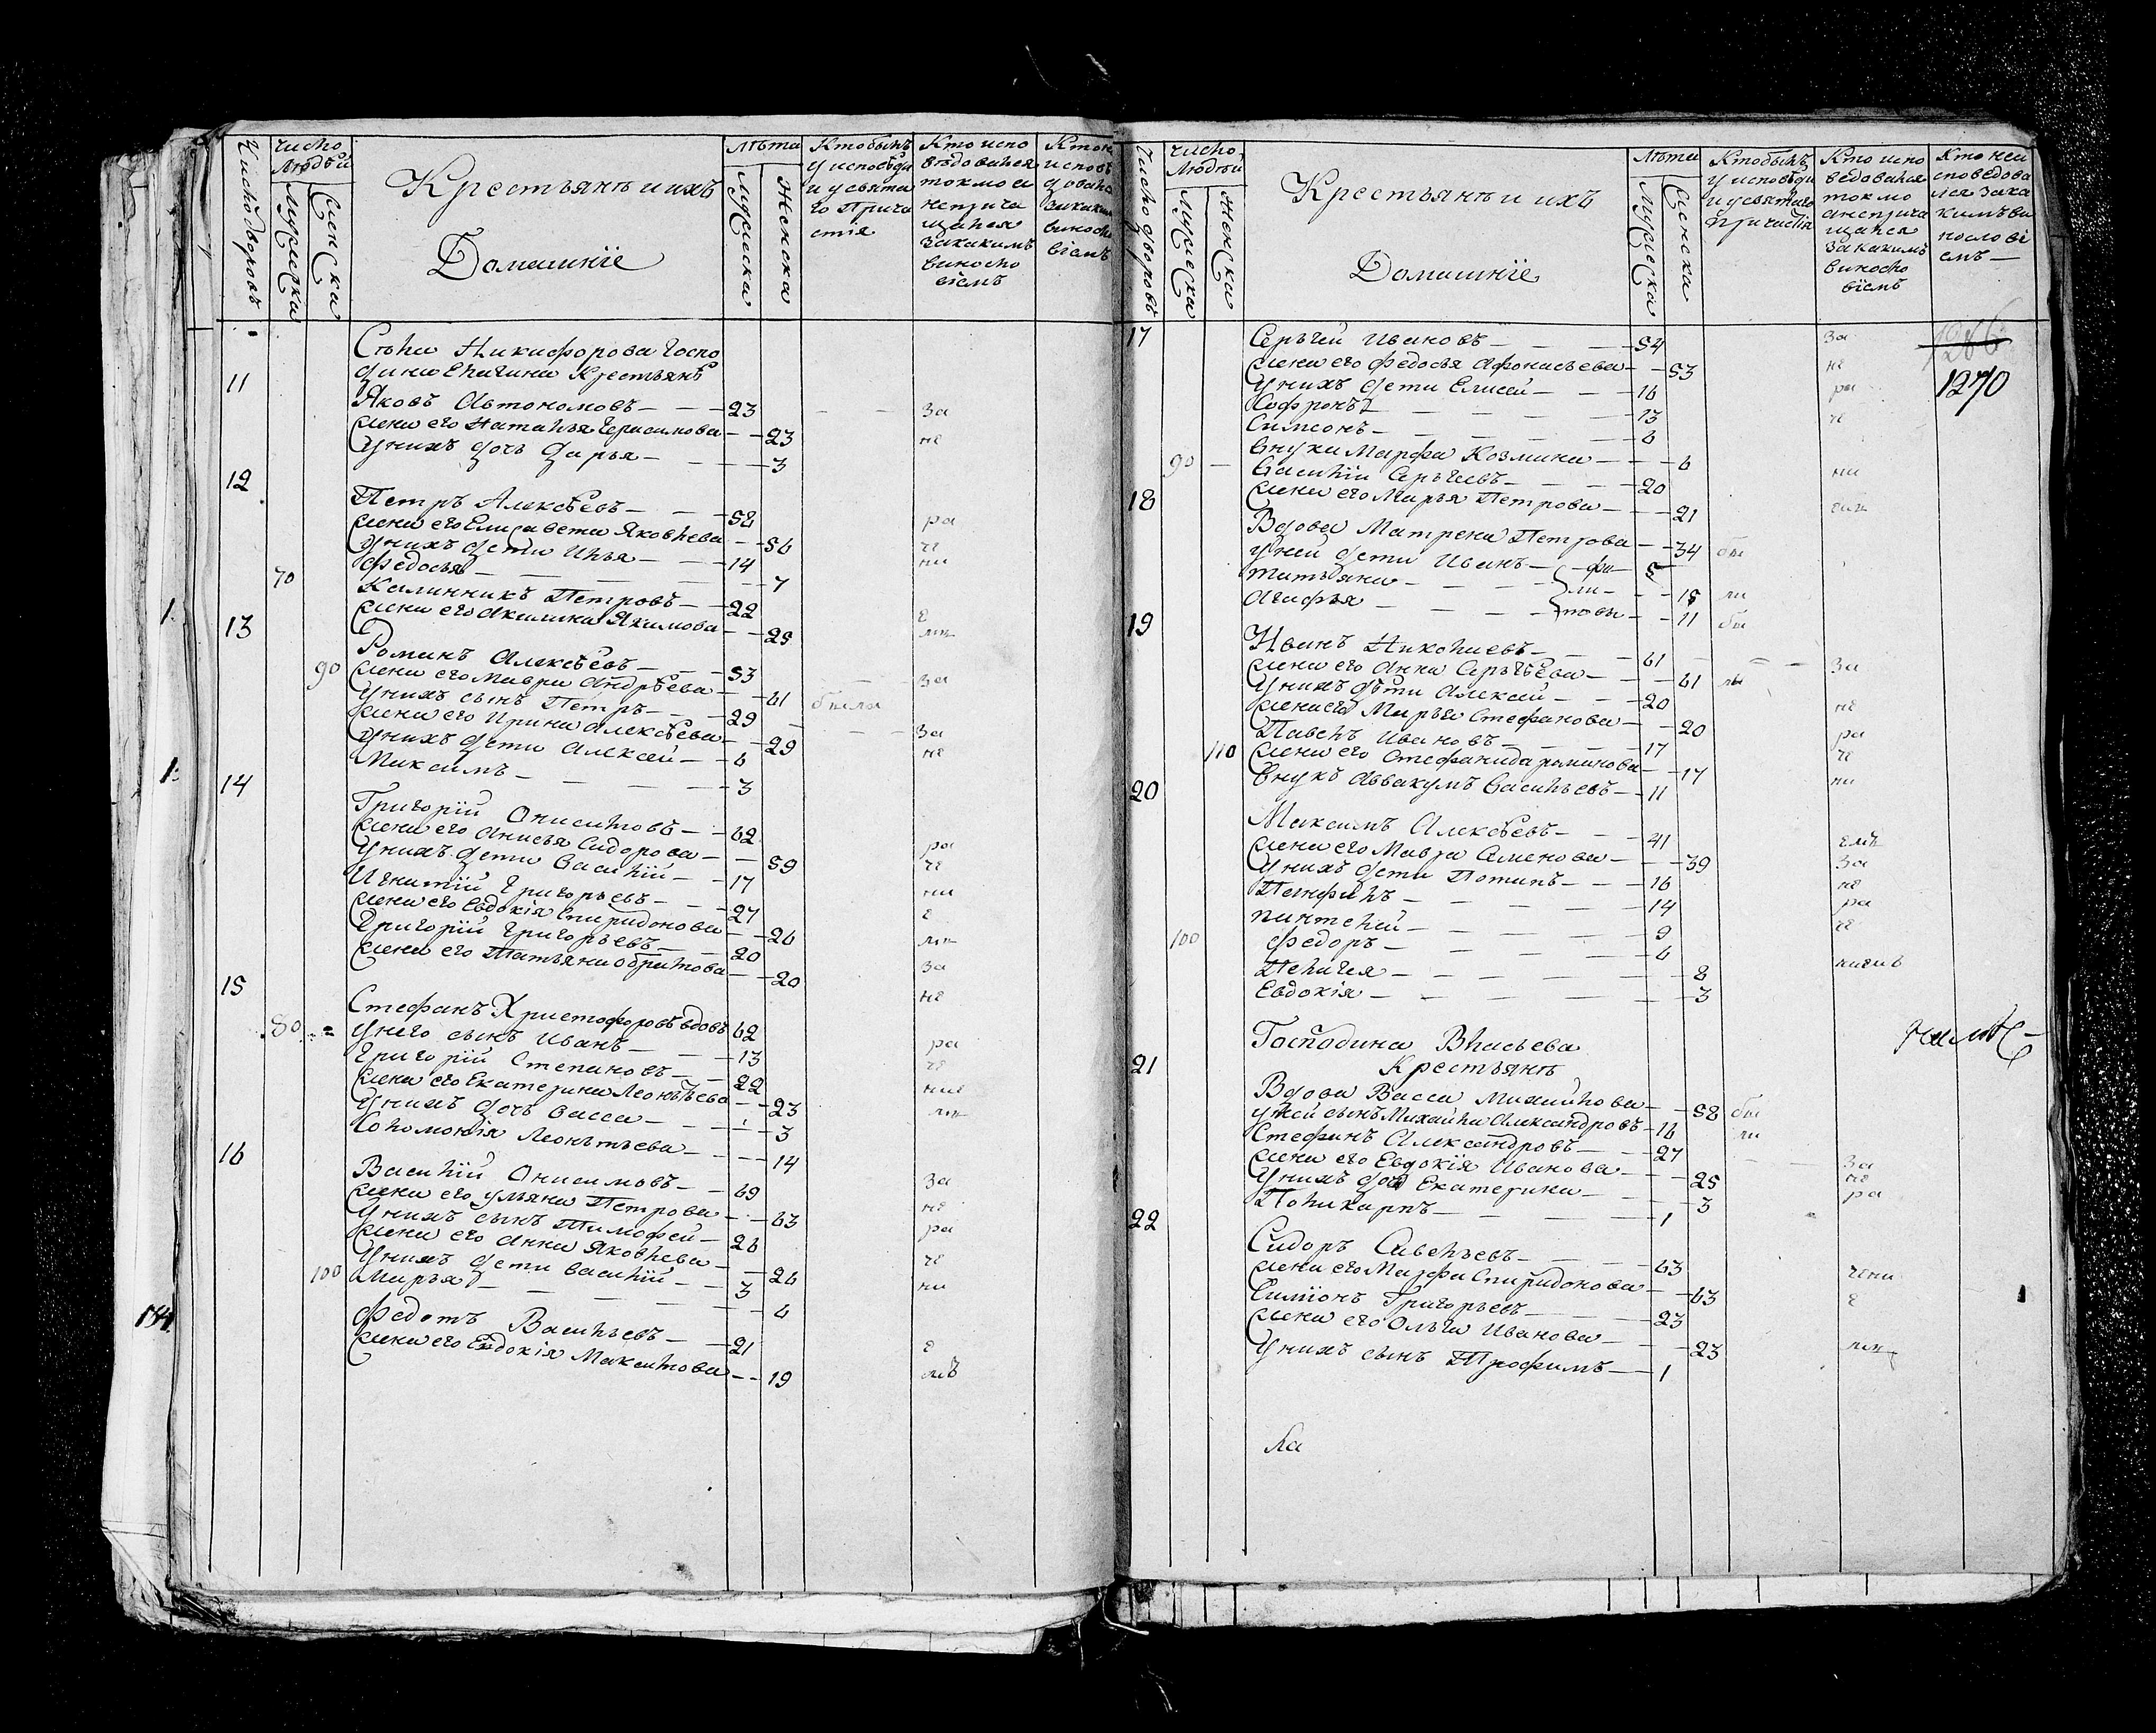 Число дворовъ
число Людѣй
Мужеска
Женска
Крестьянѣ и ихъ
Домашніе
лѣта
Мужеска
Женска
Кто былъ
у исповѣди
и у святa
го Прича
стія
Кто испо
вѣдовался
токмо а
неприча
щался
за какимъ
виносло
віемъ
Кто н
исповѣ
довалс
за каким
виносло
віемъ
Села Никифорова Госпо
дина Елагина Крестьянѣ
11
Яковъ Автономовъ 23 за
Жена его Наталья Герасимова 23 не
У нихъ дочь Дарья 3
12
Петръ Алексѣевъ 58 ра
Жена его Елисавета Яковлева 56 че
У нихъ дети Илья 14 ни
Федосья 7
70 Калинникъ Петровъ 22 е
Жена его Акилина Якимова 25 мъ
13
Романъ Алексѣевъ 53 за
90 Жена его Мавра Андрѣева 61 была
У нихъ сынъ Петръ 29 за
Жена его Ирина Алексѣева 29 не
У нихъ дети Алексѣй 6
Максимъ 3
14
Григорїй Онисимовъ 62 ра
Жена его Анисья Сидорова 59 че
У нихъ дети Василїй 17 ни
Игнатїй Григорьевъ 27 е
Жена его Евдокїя Спиридонова 26 мъ
Григорїй Григорьевъ 20 за
Жена его Татьяна 20 не
15
Стефанъ Христофоровъ вдовъ 62 ра
80 У него сынъ Иванъ 13 че
Григорїй Степановъ 22 ние
Жена его Екатерина Леонтьева 23 мъ
У нихъ дочь Васса 3
Соломонїя Леонтьева 14
16
Василїй Онисимовъ 69 за
Жена его Ульяна Петрова 63 не
У нихъ сынъ Тимофей 26 ра
Жена его Анна Яковлева 26 че
У нихъ дети Василїй 3 ни
100 Марья 6
Федотъ Васильевъ 21 е
Жена его Евдокія Максимова 19 мъ
Число дворовъ
число Людѣй
Мужеска
Женска
Крестьянѣ и ихъ
Домашнїе
лѣта
Мужеска
Женска
Кто былъ
у исповѣди
и у святаго
Причастія
Кто испо
ведовался
токмо
а не прича
щался
за какимъ
виносло
вїемъ
Кто неи
споведова
лся за ка
кимъ ви
нослові
емъ
1270
17
Серьгей Ивановъ 54 за
Жена его Федосья Афонасьева 53 не
У нихъ дети Елисей 16 ра
Софронъ 13 че
Симеонъ 8
Внука Марфа Козмина 6
90 Василїй Серьгеевъ 20 ни
Жена его Марья Петрова 21 емъ
18
Вдова Матрена Петрова 34 бы
У ней дети Иванъ 5
Татьяна 15 ли
Агафья 11 бы
19
Иванъ Николаевъ 61 за
Жена его Анна Серьгѣева 61 ла
У нихъ дѣти Алексей 20 не
Жена его Марья Стефанова 20 ра
Павелъ Ивановъ 17 че
110 Жена его Стефанида Романова 17
Внукъ Аввакумъ Васильевъ 11 ни
20
Максимъ Алексѣевъ 41 емъ
Жена его Мавра Семенова 39 за
У нихъ дети Потапъ 16 не
Панфилъ 14 ра
Пантелей 9 че
100 Федоръ 6
Пелагея 8
Евдокія 3
Господина Власьева
Крестьянѣ
21
Вдова Васса Михайлова 58 бы
у ней сынъ Михайла Александровъ 16 ли
Стефанъ Александровъ 27 за
Жена его Евдокїя Иванова 25 не
У нихъ дочь Екатерина 3 ра
Поликарпъ 1
22
Сидоръ Савельевъ 63 чени
Жена его Марфа Спиридонова 63 е
Симїонъ Григорьевъ 23
Жена его Ольга Иванова 23 мъ
У нихъ сынъ Трофимъ 1
ла